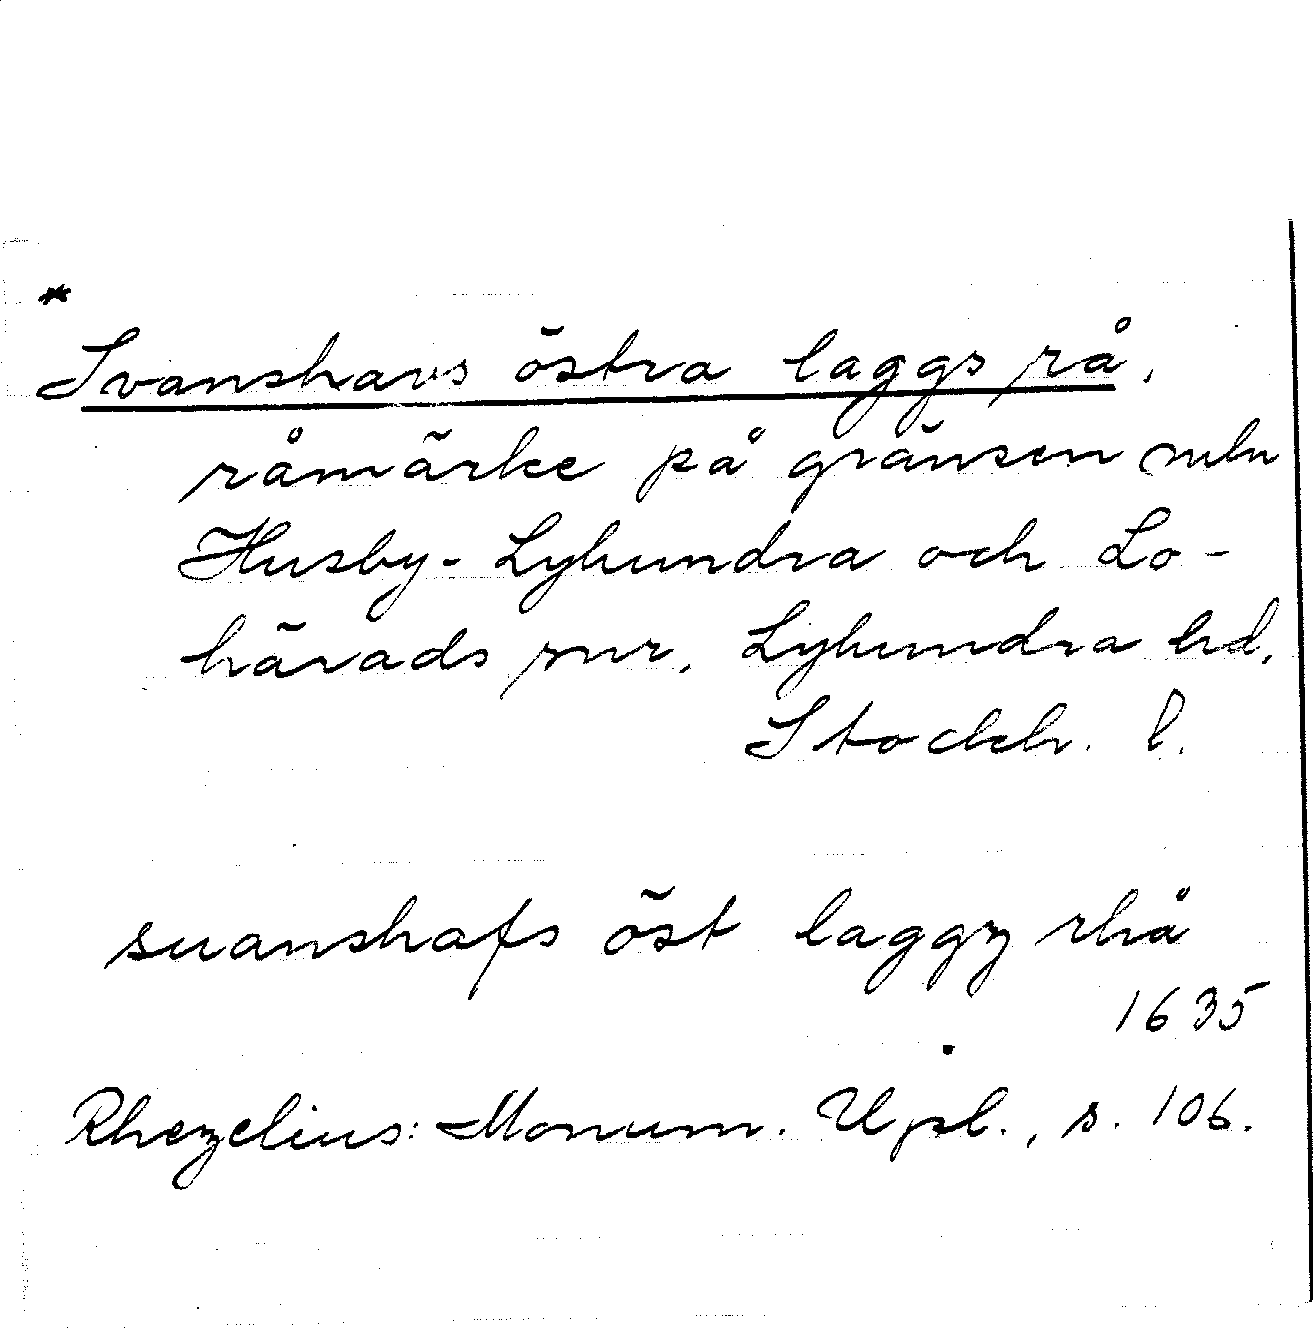 *
Svanshavs östra laggs rå,
råmärke på gränsen mln
Husby-Lyhundra och Lo-
härads snr, Lyhundra hd,
Stockh. l.
suanshafs öst laggz rhå
1635
Rhezelius: Monum. Upl., s. 106.